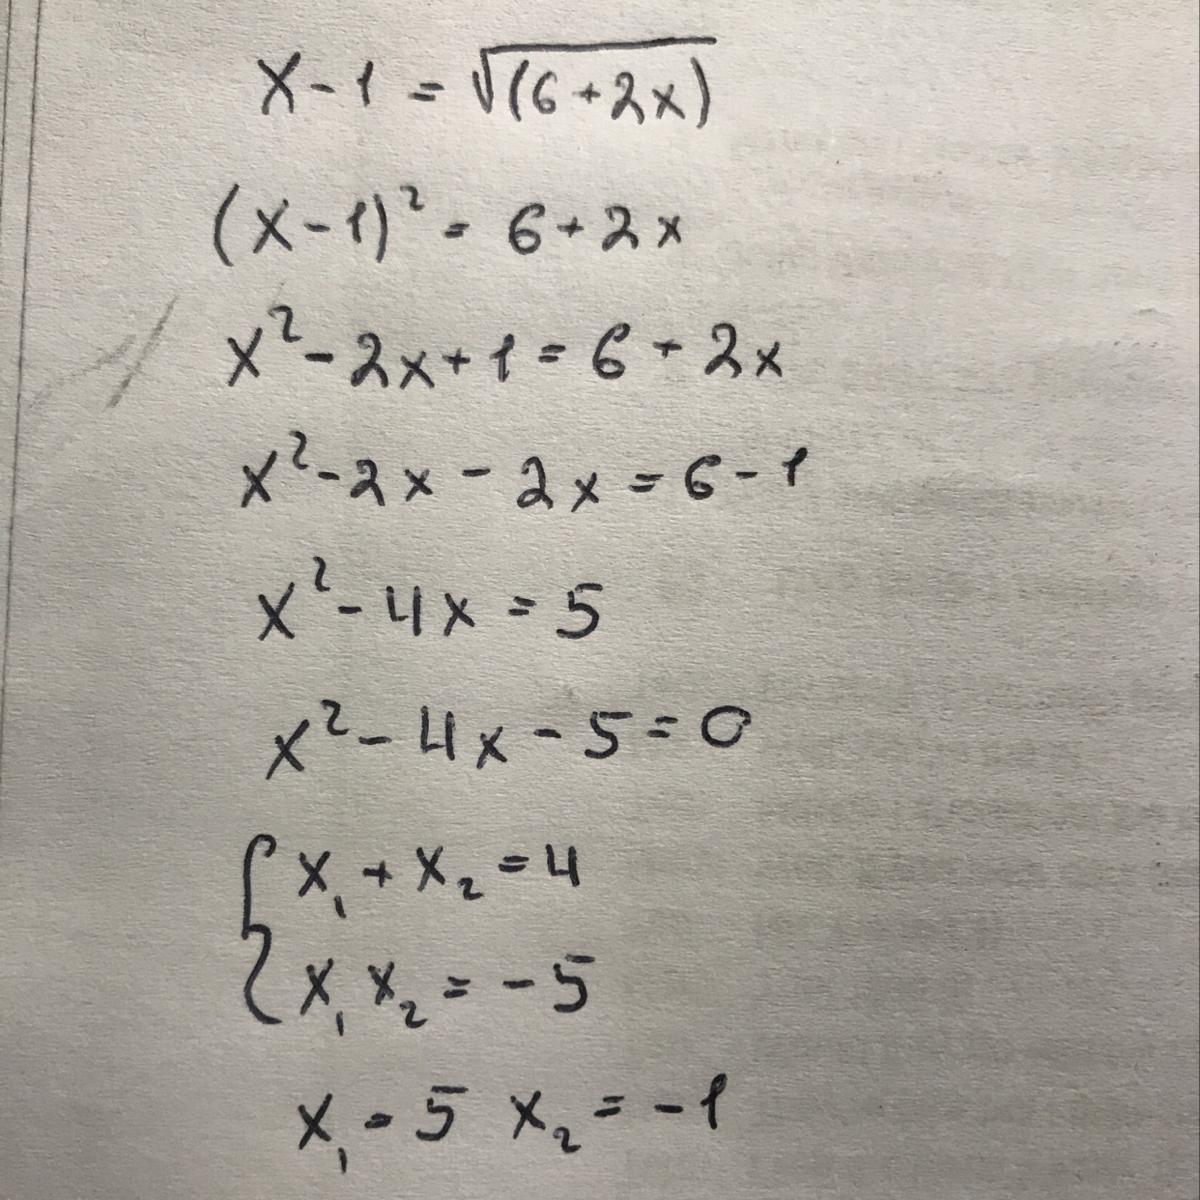 x - 1 = √(6 + 2x)
(x - 1)² = 6 + 2x
x² - 2x + 1 = 6 + 2x
x² - 2x - 2x = 6 - 1
x² - 4x = 5
x² - 4x - 5 = 0
{ x₁ + x₂ = 4
x₁ x₂ = -5
x₁ = 5 x₂ = -1